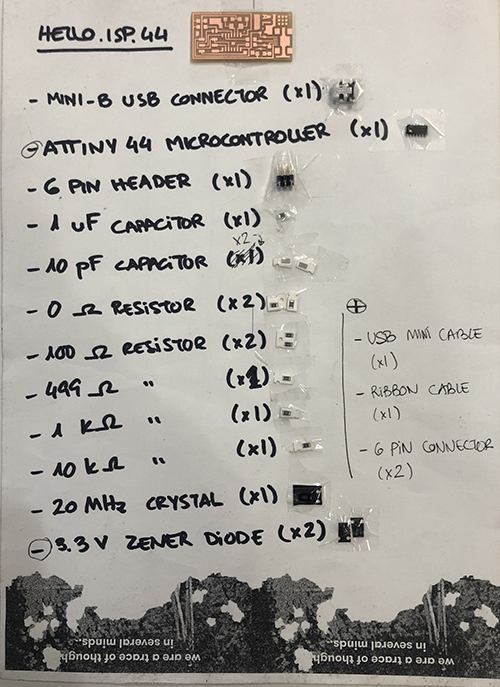 HELLO.ISP.44
- MINI-B USB CONNECTOR (x1)
- ATTINY 44 MICROCONTROLLER (x1)
- 6 PIN HEADER (x1)
- 1 uF CAPACITOR (x1)
x2
- 10 pF CAPACITOR (x1)
- 0 Ω RESISTOR (x2)
- 100 Ω RESISTOR (x2)
- 499 Ω " (x1)
- 1 KΩ " (x1)
- 10 KΩ " (x1)
- 20 MHz CRYSTAL (x1)
- 3.3 V ZENER DIODE (x2)
+
- USB MINI CABLE
(x1)
- RIBBON CABLE
(x1)
- 6 PIN CONNECTOR
(x2)
we are a trace of though
in several minds..
we are a trace of though
in several minds..